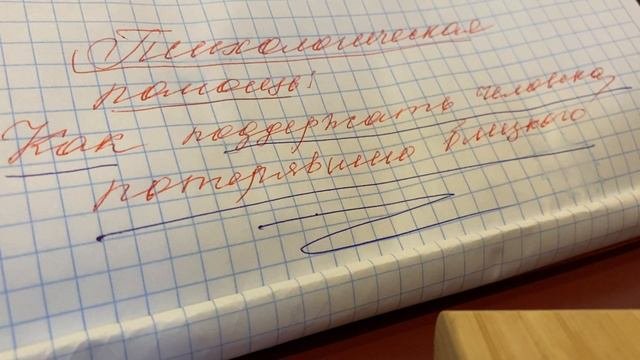 Психологическая
помощь!
Как поддержать человека,
потерявшего близкого